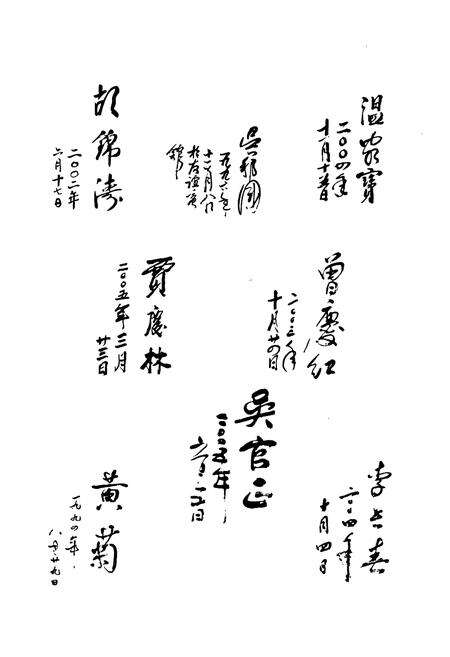 胡锦涛
二〇〇二年
六月十七日
吴邦国
一九九六年
十一月八日
温家宝
二〇〇四年
贾庆林
二〇〇五年三月
廿三日
曾庆红
二〇〇三年
十月廿四日
吴官正
二〇〇五年
黄菊
一九九四年
八月廿九日
李长春
二〇〇四年
十月四日